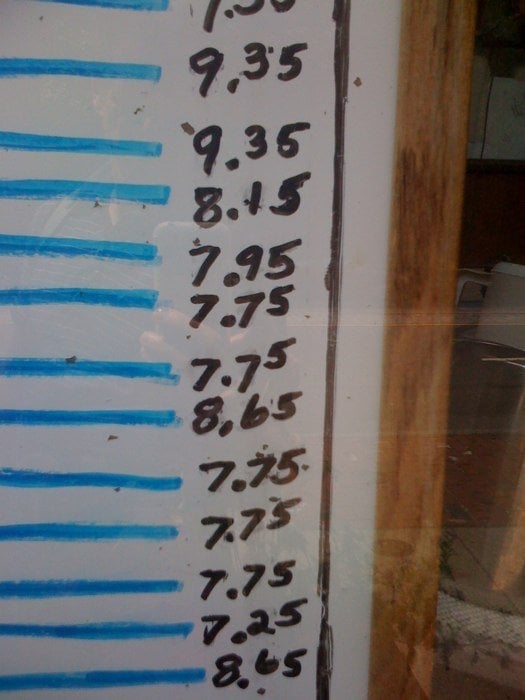 9.35
9.35
8.15
7.95
7.75
7.75
8.65
7.75
7.75
7.75
7.25
8.65